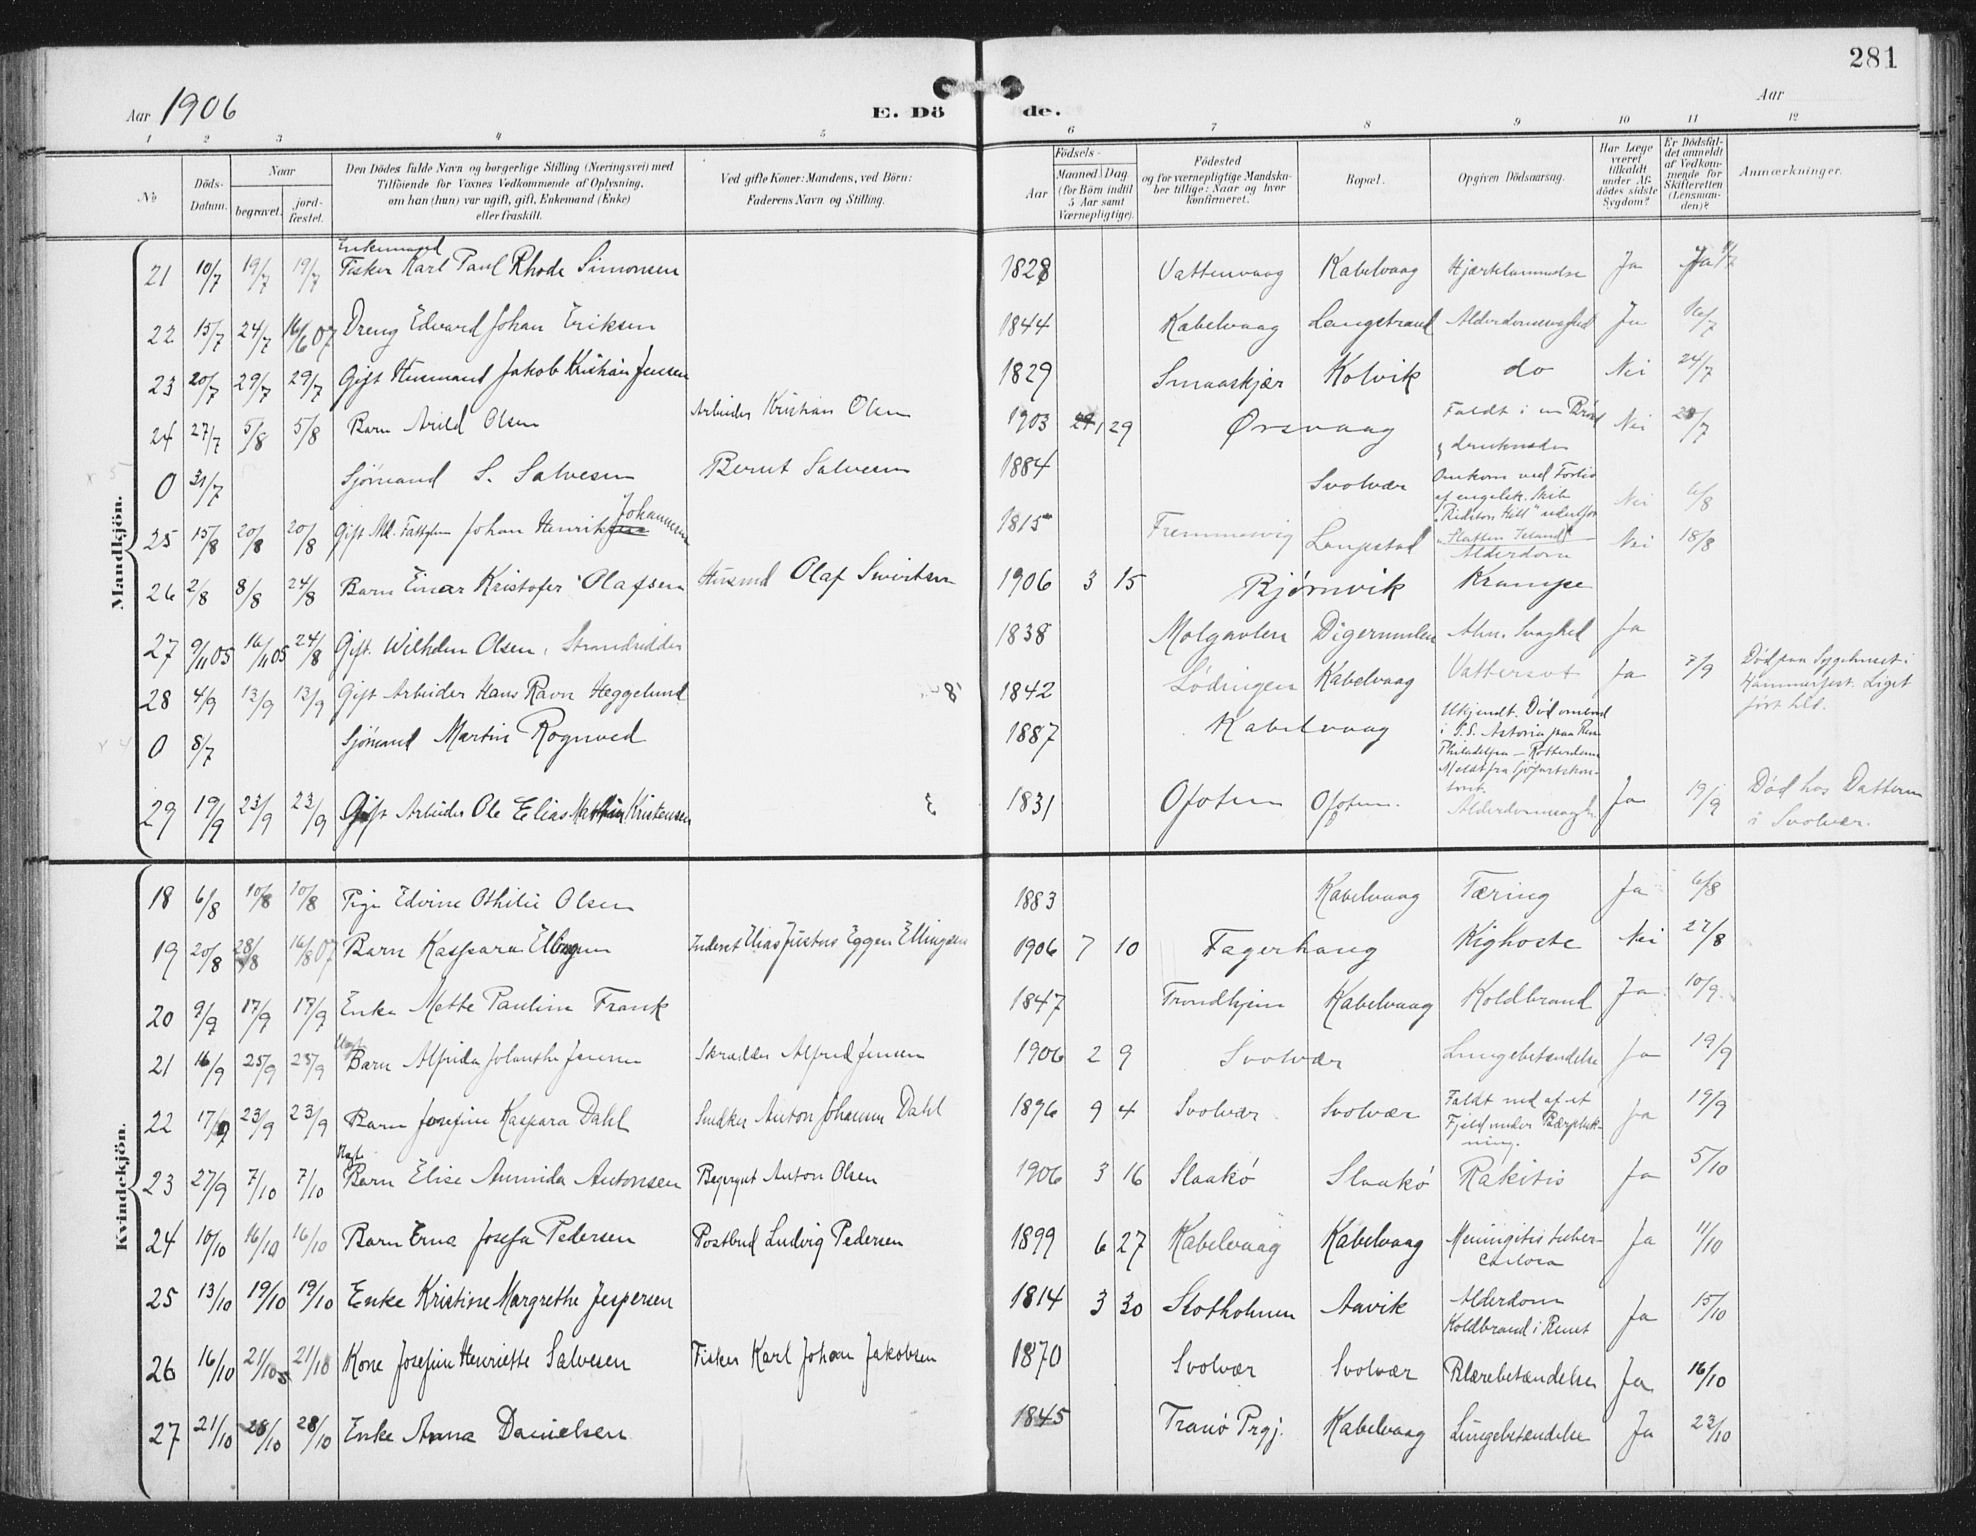 281
Aar 1906
E. Döde.
Aar
1 2 3 4 5 6 7 8 9 10 11 12
No
Döds-Datum.
Naar
begravet.
jord-fæstet.
Den Dödes fulde Navn og borgerlige Stilling (Næringsvei) med
Tilföiende for Voxnes Vedkommende af Oplysning,
om han (hun) var ugift, gift, Enkemand (Enke)
eller fraskilt.
Ved gifte Koner: Mandens, ved Börn:
Faderens Navn og Stilling.
Födsels-
Aar
Maaned. Dag.
(for Börn indtil
5 Aar samt
Værnepligtige).
Födested
og for værnepligtige Mandska-
ber tillige: Naar og hvor
konfirmeret.
Bopæl.
Opgiven Dödsaarsag.
Har Læge
været
tilkaldt
under Af-
dödes sidste
Sygdom?
Er Dödsfal-
det anmeldt
af Vedkom-
mende for
Skifteretten
(Lensman-
den)?
Anmærkninger.
Mandkjön.
Enkemand
21 10/7 19/7 19/7 Fisker Karl Paul Rhode Simonsen 1828 Vattenvaag Kabelvaag Hjærtelammelse Ja
22 15/7 24/7 16/6 07 Dreng Edvard Johan Eriksen 1844 Kabelvaag Langstrand Alderdomssvaghed Ja 16/7
23 20/7 29/7 29/7 Gift Husmand Jakob Kristian Jensen 1829 Smaaskjær Kolvik do Nei 24/7
24 27/7 5/8 5/8 Barn Arild Olsen Arbeider Kristian Olsen 1903 1 29 Ørsvaag Faldt i en Brønd
& druknede Nei 28/7
0 31/7 Sjömand S. Salvesen Bernt Salvesen 1884 Svolvær Omkom ved Forlis
af engelsk Skib
"Ridston Hill" udenfor
"Slatten Island" Nei 6/8
25 15/8 20/8 20/8 Gift Johan Henrik Johannesen 1815 Fremmervig Langstad Alderdom Nei 18/8
26 2/8 8/8 24/8 Barn Einar Kristofer Olafsen Husmd Olaf Sivertsen 1906 3 15 Bjørnvik Krampe
27 9/11 05 16/11 05 24/8 Gift. Wilhelm Olsen, Strandsidder 1838 Molgavlen Digermulen Alm. Svaghed Ja
28 4/9 13/9 13/9 Gift Arbeider Hans Ravn Heggelund 1842 Lödingen Kabelvaag Vattersot Ja 7/9 Död paa Sygehuset i
Hammerfest. Liget
fört hid.
0 8/7 Sjömand Martin Rognved 1887 Kabelvaag Ukjendt. Död ombord
i S.S. Astoria paa Reise
Philadelfia - Rotterdam
Meldt fra Sjöfartskon-
toret.
29 19/9 23/9 23/9 Gift Arbeider Ole Elias Mathias Kristensen 1831 Ofoten Ofoten. Alderdomssvagh. Ja 19/9 Död hos Datteren
i Svolvær.
Kvindekjön.
18 6/8 10/8 10/8 Pige Edvine Othilie Olsen 1883 Kabelvaag Tæring Ja 6/8
19 20/8 28/8 16/8 07 Barn Kaspara Ellingsen Inderst Elias Justus Eggen Ellingsen 1906 7 10 Fagerhaug Kighoste Nei 27/8
20 9/9 17/9 17/9 Enke Mette Pauline Frank 1847 Trondhjem Kabelvaag Koldbrand Ja 10/9
21 16/9 25/9 25/9 Barn Alfrida Jolanthe Jensen Skrædder Alfred Jensen 1906 2 9 Svolvær Lungebetændelse Ja 19/9
22 17/9 23/9 23/9 Barn Josefine Kaspara Dahl Snedker Anton Johannes Dahl 1896 9 4 Svolvær Svolvær Faldt ned af et
Fjeld under Bærpluk-
ning. Ja 19/9
23 27/9 7/10 7/10 Barn Elise Aminda Antonsen Anton Olsen 1906 3 16 Slaakö Slaakö Rakitis Ja 5/10
24 10/10 16/10 16/10 Barn Erna Josefa Pedersen Postbud Ludvig Pedersen 1899 6 27 Kabelvaag Kabelvaag Meningitis tuber-
culosa Ja 11/10
25 13/10 19/10 19/10 Enke Kristine Margrethe Jespersen 1814 3 30 Slotholmen Aavik Alderdom
Koldbrand i Benet Ja 15/10
26 16/10 21/10 21/10 Kone Josefine Henriette Salvesen Fisker Karl Johan Jakobsen 1870 Svolvær Svolvær Blærebetændelse Ja 16/10
27 21/10 28/10 28/10 Enke Anna Danielsen 1845 Tranö Prgj. Kabelvaag Lungebetændelse Ja 23/10